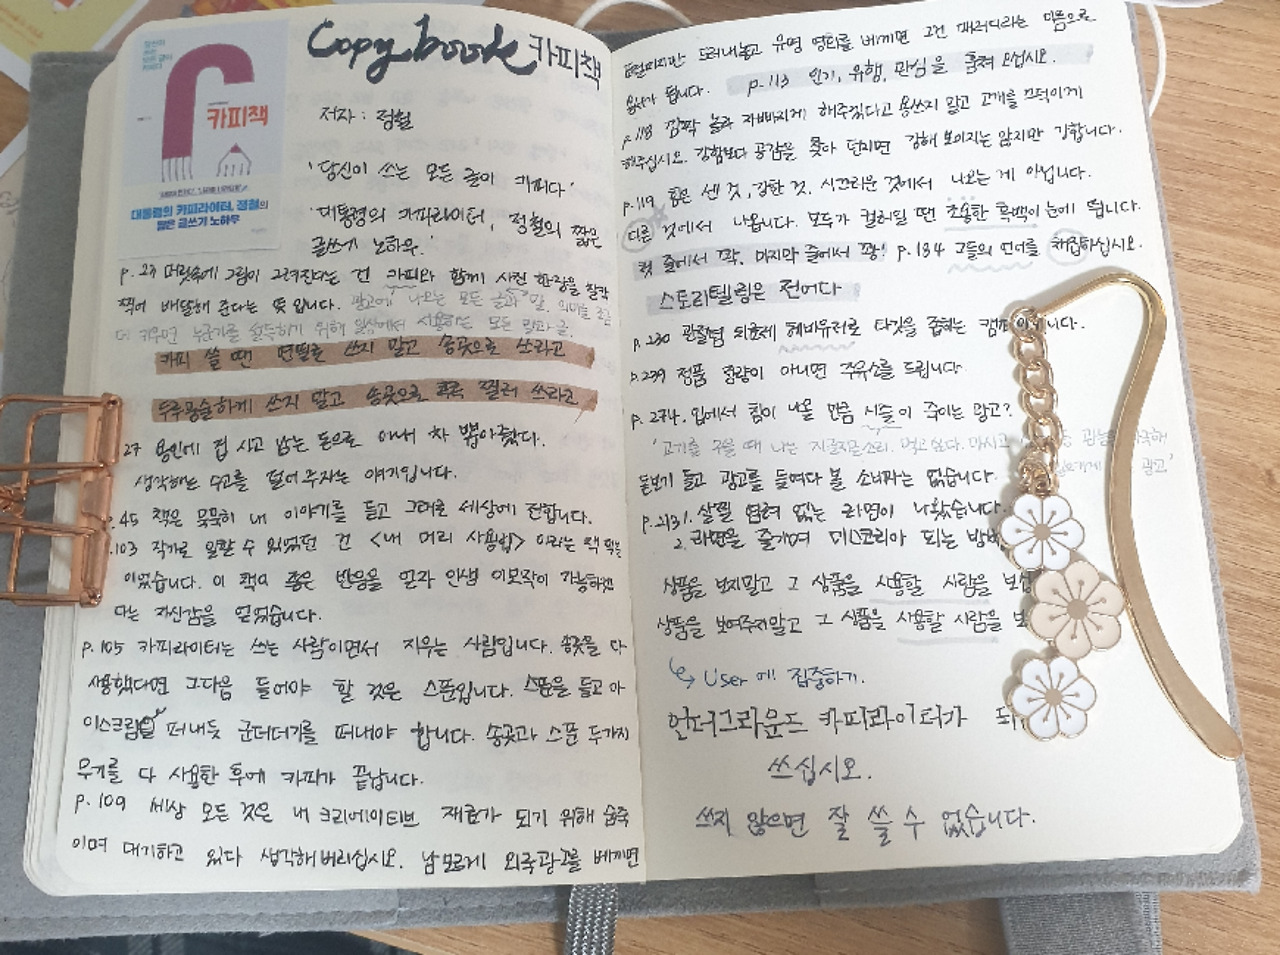 Copy book 카피책
카피책
대통령의 카피라이터, 정철의
짧은 글쓰기 노하우
저자 : 정철
'당신이 쓰는 모든 글이 카피다'
'대통령의 카피라이터, 정철의 짧은
글쓰기 노하우.
p.27 머릿속에 그림이 그려진다는 건 카피와 함께 사진 한장을 찰칵
찍어 배달해 준다는 뜻입니다. 광고에 나오는 모든 글과 말. 의미를 조금
더 키우면 누군가를 설득하기 위해 일상에서 사용하는 모든 말과 글.
카피 쓸 땐 연필로 쓰지 말고 송곳으로 쓰라고
두루뭉술하게 쓰지 말고 송곳으로 콕콕 찔러 쓰라고
27 용인에 집 사고 남는 돈으로 아내 차 뽑아줬다.
생각하는 수고를 덜어주자는 얘기입니다.
p.45 책은 묵묵히 내 이야기를 듣고 그대로 세상에 전합니다.
p.103 작가로 일할 수 있었던 건 <내 머리 사용법> 이라는 책
이었습니다. 이 책의 좋은 반응을 얻자 인생 이모작이 가능하겠
다는 자신감을 얻었습니다.
p.105 카피라이터는 쓰는 사람이면서 지우는 사람입니다. 송곳을 다
사용했다면 그다음 들어야 할 것은 스푼입니다. 스푼을 들고 아
이스크림을 퍼내듯 군더더기를 떠내야 합니다. 송곳과 스푼 두가지
무기를 다 사용한 후에 카피가 끝납니다.
p.109 세상 모든 것은 내 크리에이티브 재료가 되기 위해 숨죽
이며 대기하고 있다 생각해버리십시오. 남 모르게 외국광고를 베끼면
드러내놓고 유명 영화를 베끼면 그건 패러디라는 이름으로
용서가 됩니다. p.113 인기, 유행, 관심을 훔쳐 오십시오.
p.118 깜짝 놀라 자빠지게 해주겠다고 용쓰지 말고 고개를 끄덕이게
해주십시오. 강함보다 공감을 쫓아 던지면 강해 보이지는 않지만 강합니다.
p.119 힘은 센 것, 강한 것, 시끄러운 것에서 나오는 게 아닙니다.
다른 것에서 나옵니다. 모두가 컬러일 땐 초술한 흑백이 눈에 띕니다.
첫 줄에서 꽉, 마지막 줄에서 꽝! p.134 그들의 언어를 채집하십시오.
스토리텔링은 전어다
p.230 관절염 치료제 헤비유저로 타깃을 좁히는 캠페인입니다.
p.239 정품 정량이 아니면 주유소를 드립니다.
p.274. 입에서 힘이 나올 만큼 시술이 죽이는 광고?
'고기를 구울 때 나는 지글지글소리. 먹고 싶다. 마시고
돋보기 들고 광고를 들여다 볼 소비자는 없습니다.
광고'
p.213 1. 살찔 염려 없는 라면이 나왔습니다.
2. 라면을 즐기며 미스코리아 되는 방법
상품을 보지말고 그 상품을 사용할 사람을 보십
상품을 보여주지말고 그 상품을 사용할 사람을 보
User 에 집중하기.
언더그라운드 카피라이터가 되
쓰십시오.
쓰지 않으면 잘 쓸 수 없습니다.